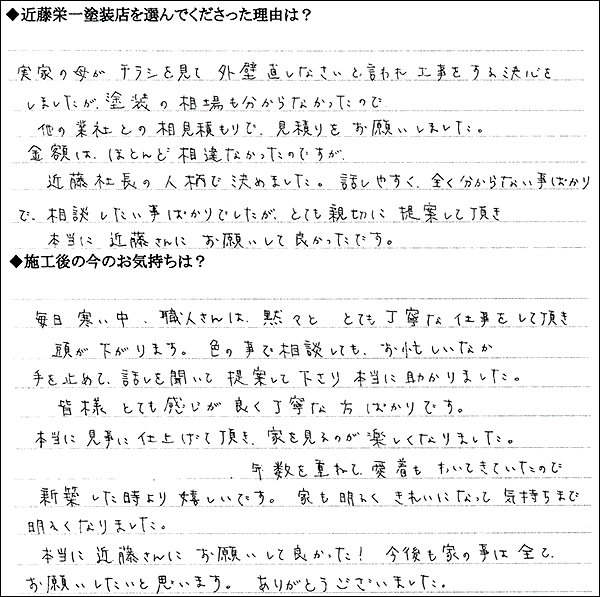 ◆近藤栄一塗装店を選んでくださった理由は？
実家の母が チラシを見て 外壁直しなさいと言われ 工事をする決心を
しましたが、塗装の相場も分からなかったので
他の業社との相見積もりで、見積りをお願いしました。
金額は、ほとんど相違なかったのですが、
近藤社長の人柄で決めました。話しやすく、全く分からない事ばかり
で、相談したい事ばかりでしたが、とても親切に提案して頂き
本当に近藤さんにお願いして良かったです。
◆施工後の今のお気持ちは？
毎日寒い中、職人さんは、黙々と とても丁寧な仕事をして頂き
頭が下がります。色の事で相談しても、お忙しいなか
手を止めて、話しを聞いて提案して下さり本当に助かりました。
皆様とても感じが良く丁寧な方ばかりです。
本当に見事に仕上げて頂き、家を見るのが楽しくなりました。
年数を重ねて、愛着もわいてきていたので
新築した時より嬉しいです。家も明るくきれいになって気持ちまで
明るくなりました。
本当に近藤さんにお願いして良かった！今後も家の事は全て、
お願いしたいと思います。ありがとうございました。